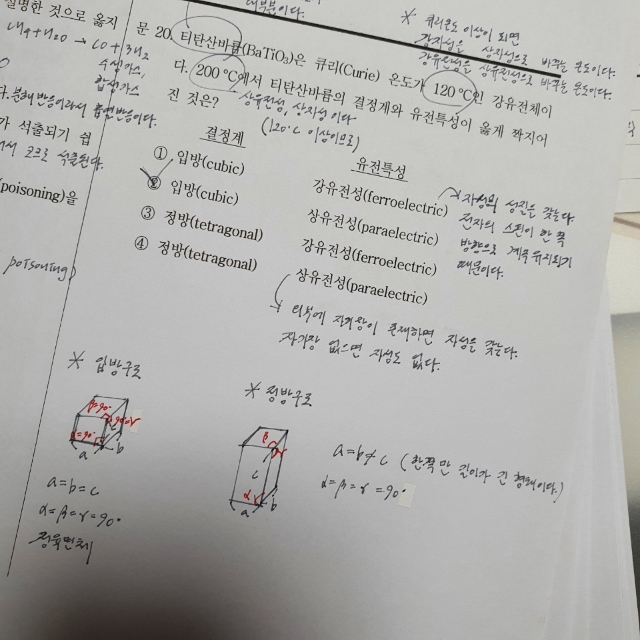 대부분이다.
※ 큐리온도 이상이 되면
강자성을 상자성으로 바꾸는 온도이다.
강유전성을 상유전성으로 바꾸는 온도이다.
설명한 것으로 옳지
CH₄+H₂O → CO+3H₂
수성가스,
합성가스
다. 분해반응이라서 흡열반응이다.
가 석출되기 쉽
서 코크로 석출된다.
(poisoning)을
poisoning)
문 20. 티탄산바륨(BaTiO₃)은 큐리(Curie) 온도가 120 ℃인 강유전체이
다. 200 ℃에서 티탄산바륨의 결정계와 유전특성이 옳게 짝지어
진 것은?
상유전성, 상자성이다
(120℃ 이상이므로)
결정계 유전특성
① 입방(cubic) 강유전성(ferroelectric)
② 입방(cubic) 상유전성(paraelectric)
③ 정방(tetragonal) 강유전성(ferroelectric)
④ 정방(tetragonal) 상유전성(paraelectric)
자성의 성질을 갖는다
전자의 스핀이 한 쪽
방향으로 계속 유지되기
때문이다.
외부에 자기장이 존재하면 자성을 갖는다.
자기장 없으면 자성도 없다.
※ 입방구조
β=90°
α=90°
a b
a=b=c
α=β=γ=90°
정육면체
※ 정방구조
β
c
α γ
a b
a=b≠c (한쪽만 길이가 긴 형태이다)
α=β=γ=90°